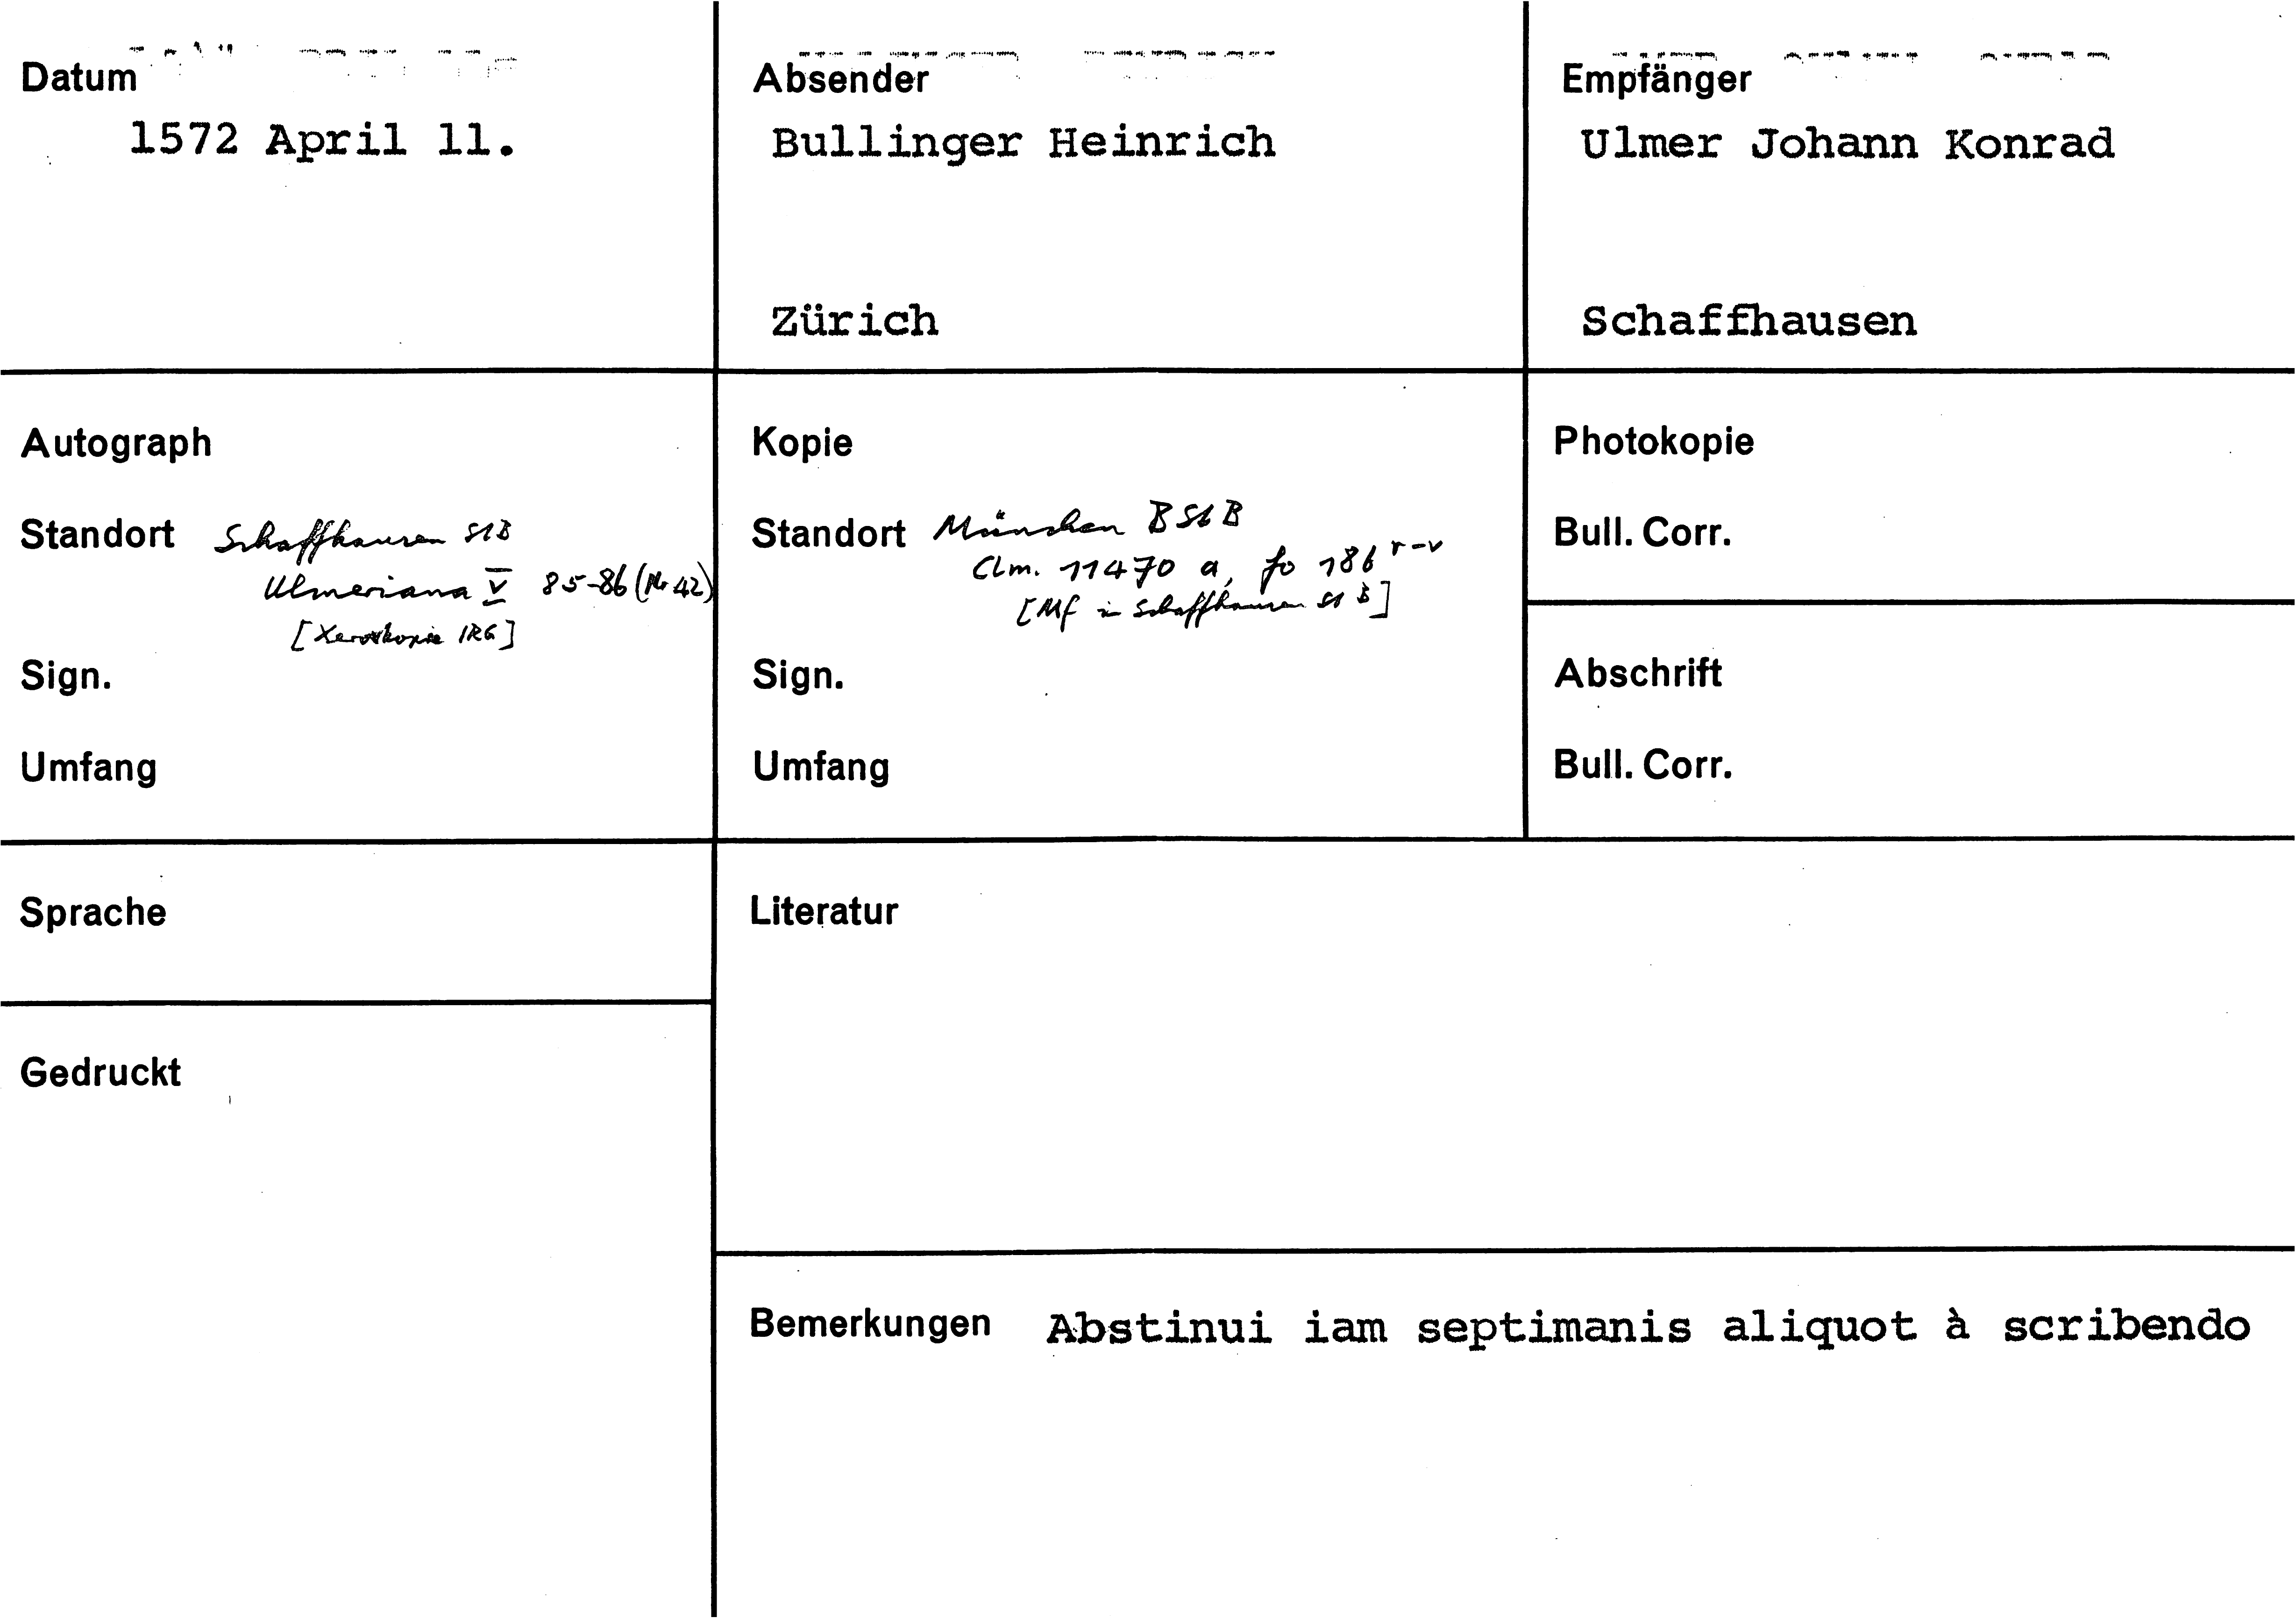 Datum
1572 April 11.
Absender
Bullinger Heinrich
Zürich
Empfänger
Ulmer Johann Konrad
Schaffhausen
Autograph
Standort Schaffhausen StB
Ulmeriana V 85-86 (Nr 42)
[Xerokopie IRG]
Sign.
Umfang
Kopie
Standort München BStB
Clm. 11470 a, fo 186 r-v
[Mf in Schaffhausen StB]
Sign.
Umfang
Photokopie
Bull. Corr.
Abschrift
Bull. Corr.
Sprache
Gedruckt
Literatur
Bemerkungen Abstinui iam septimanis aliquot à scribendo